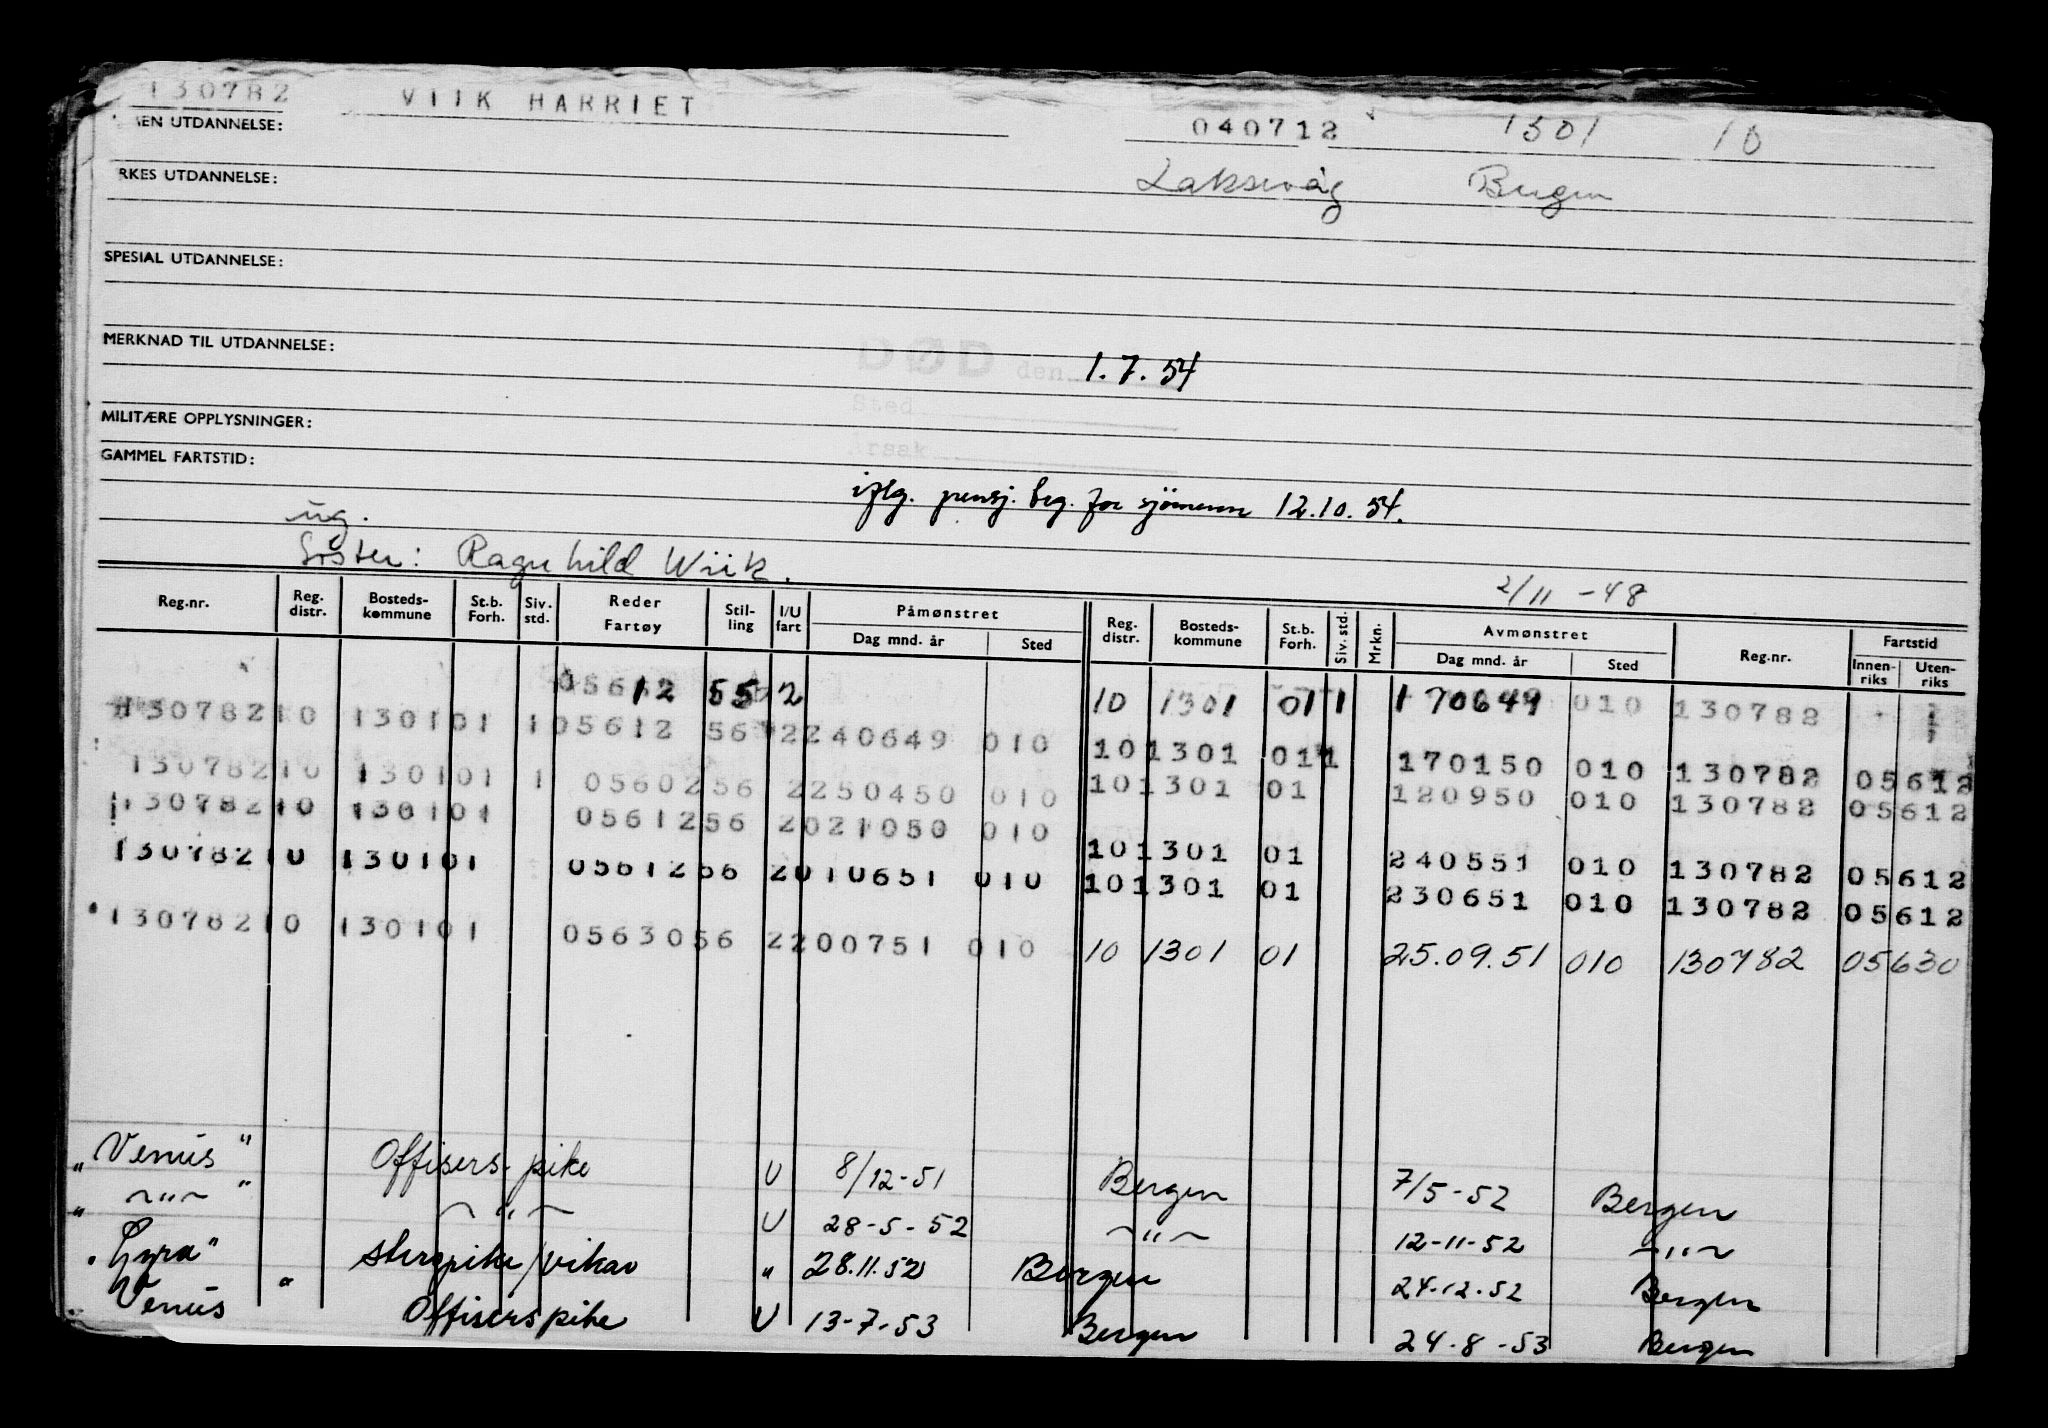 130782 VIIK HARRIET 040712 1301 10
MEN UTDANNELSE:
RKES UTDANNELSE: Laksevåg Bergen
SPESIAL UTDANNELSE:
MERKNAD TIL UTDANNELSE: DØD den 1.7.54
Sted
Årsak
MILITÆRE OPPLYSNINGER:
GAMMEL FARTSTID:
iflg. pensj. beg. for sjömenn 12.10.54.
ug.
Søster: Ragnhild Wiik.
2/11 -48
Reg.nr. Reg. distr. Bosteds-kommune St.b. Forh. Siv. std. Reder Fartøy Stil-ling I/U fart Påmønstret Dag mnd. år Sted Reg. distr. Bosteds-kommune St.b. Forh. Siv. std. Mrkn. Avmønstret Dag mnd. år Sted Reg.nr. Fartstid Innen-riks Uten-riks
05612 55 2 10 1301 01 1 170649 010 130782
13078210 130101 105612 56 2240649 010 101301 011 170150 010 130782 05612
13078210 130101 1 0560256 2250450 010 101301 01 120950 010 130782 05612
13078210 130101 0561256 2021050 010 101301 01 240551 010 130782 05612
13078210 130101 0561256 2010651 010 101301 01 230651 010 130782 05612
13078210 130101 0563056 2200751 010 10 1301 01 25.09.51 010 130782 05630
"Venus" Offisers-pike U 8/12-51 Bergen 7/5-52 Bergen
" ~"~ " ~"~ U 28-5-52 ~"~ 12-11-52 ~"~
"Lyra" stergpike/vikar " 28.11.52 Bergen 24-12-52 Bergen
Venus " Offiserspike U 13-7-53 Bergen 24-8-53 Bergen